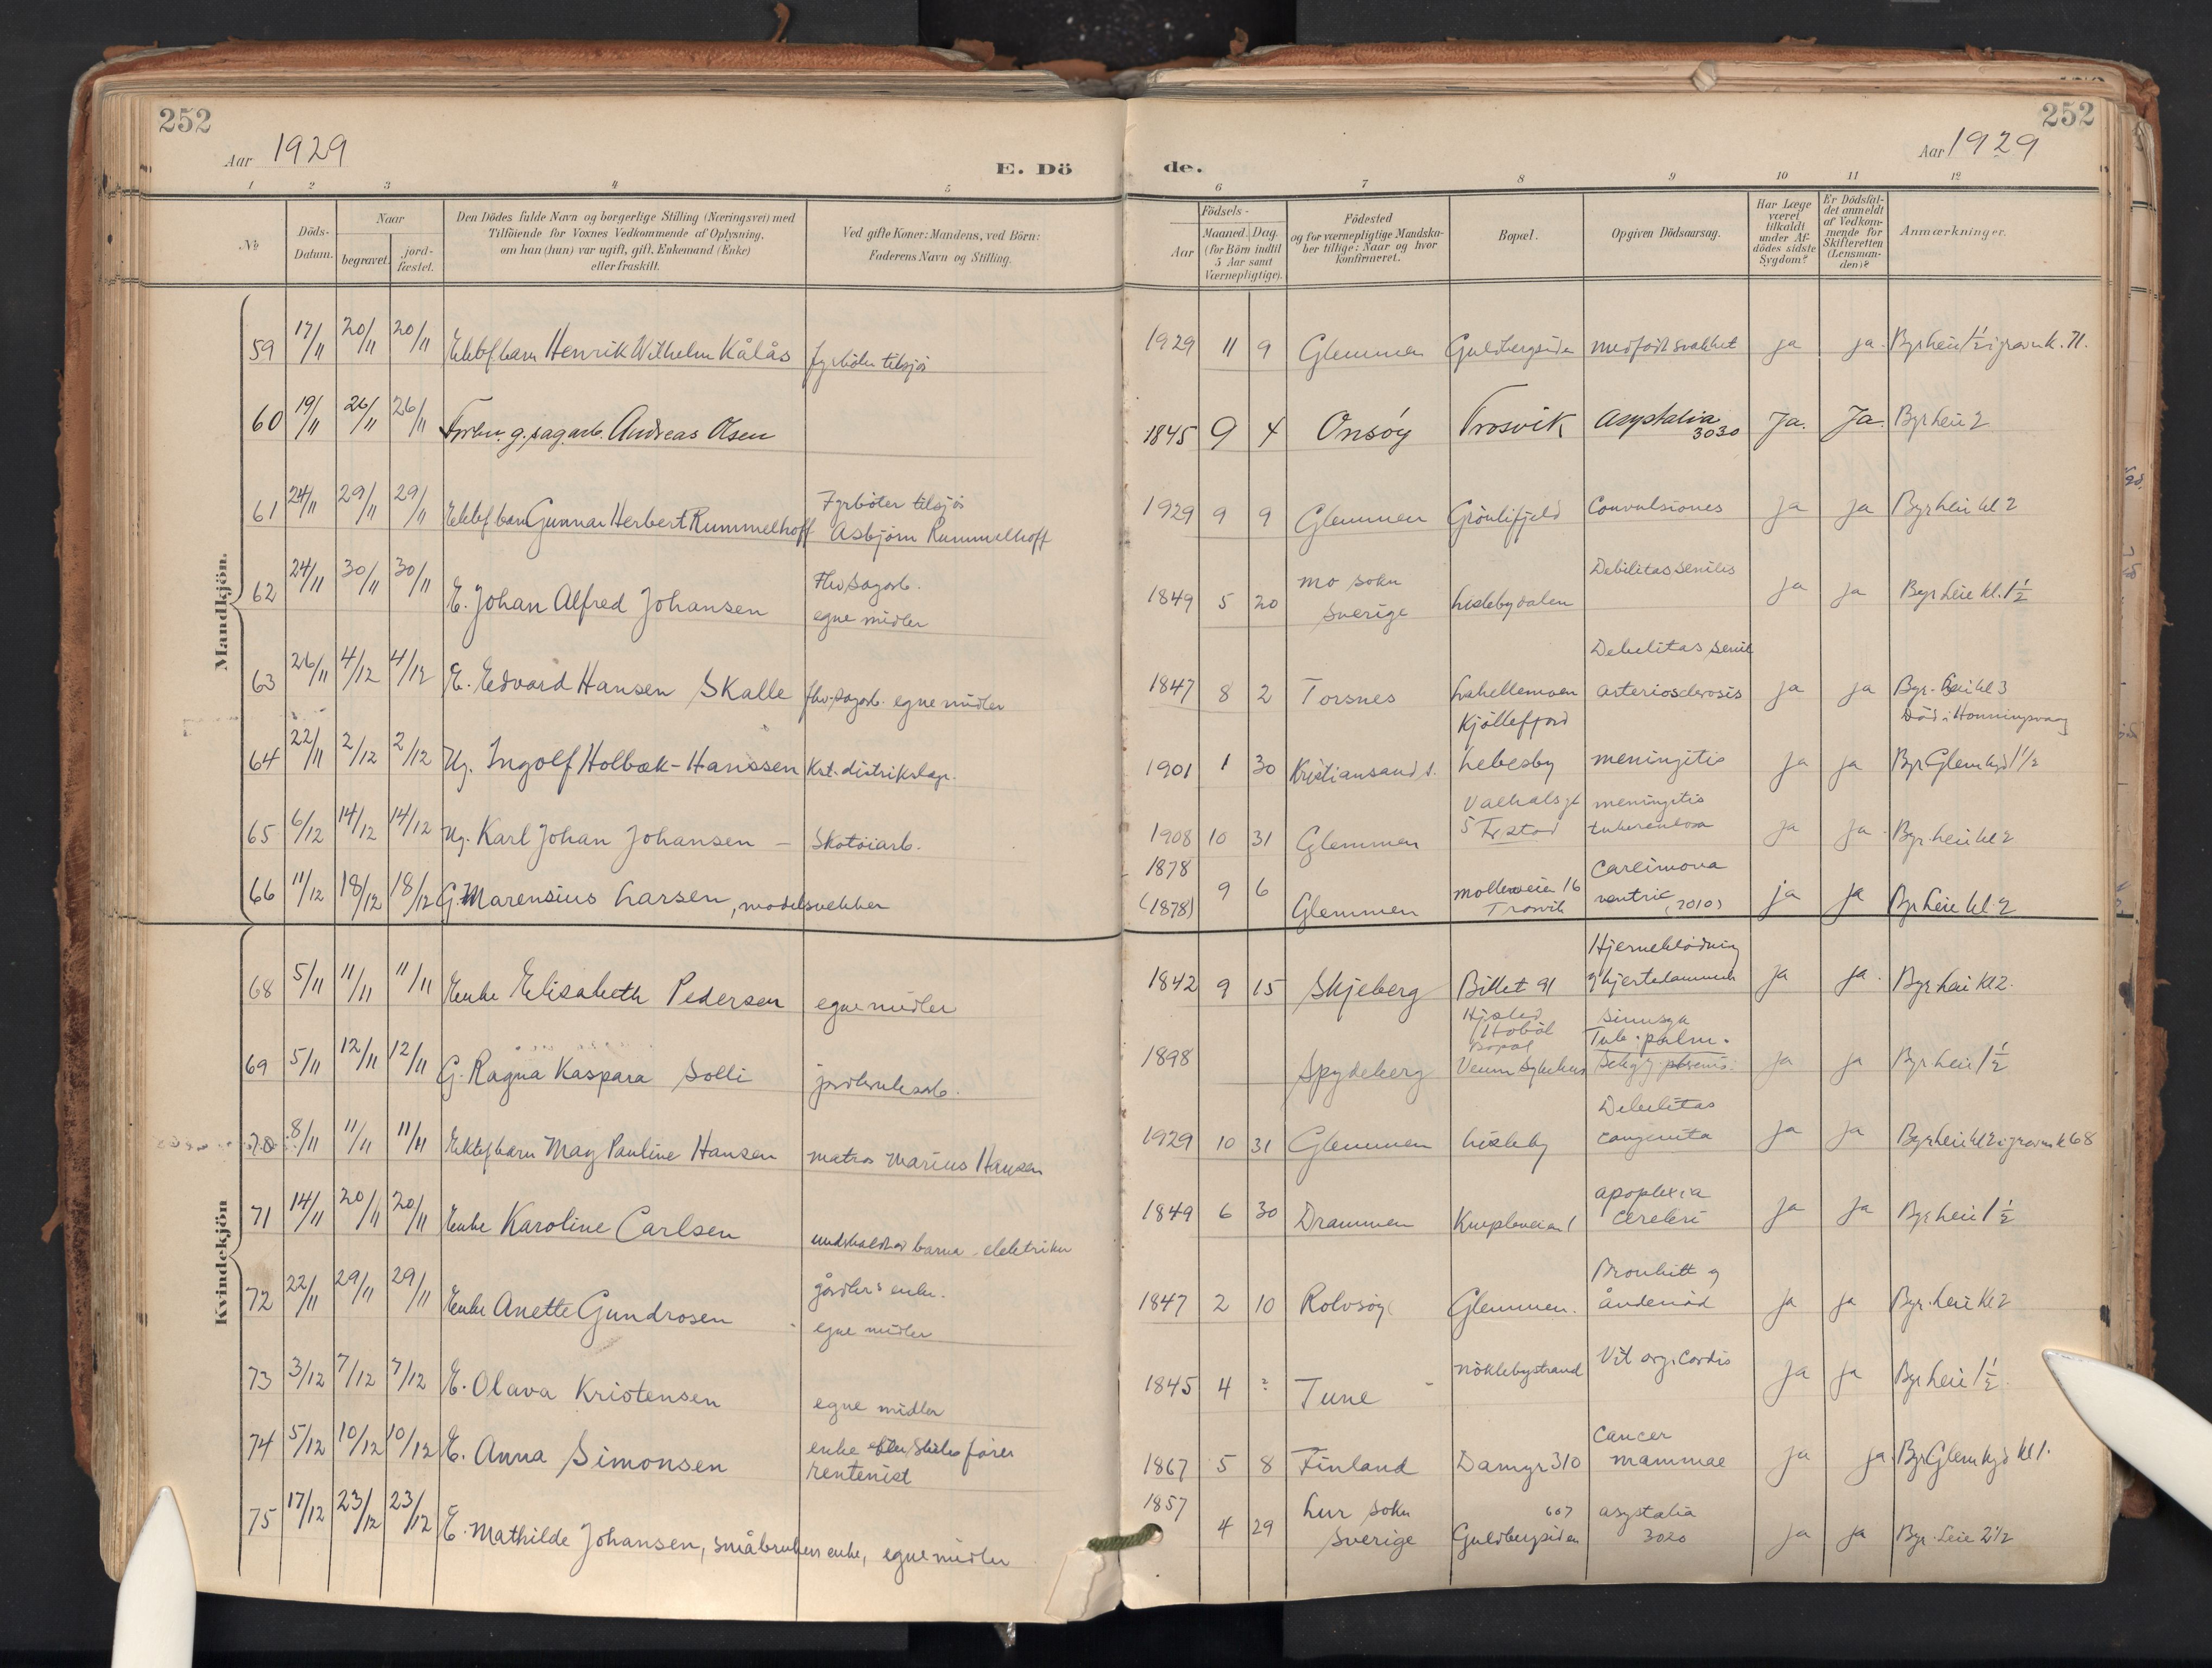 252
252
Aar 1929
E. Dö
de.
Aar 1929
1 2 3 4 5 6 7 8 9 10 11 12
No
Döds-
Datum.
Naar
begravet.
jord-
fæstet.
Den Dödes fulde Navn og borgerlige Stilling (Næringsvei) med
Tilföiende for Voxnes Vedkommende af Oplysning,
om han (hun) var ugift, gift, Enkemand (Enke)
eller fraskilt.
Ved gifte Koner: Mandens, ved Börn:
Faderens Navn og Stilling.
Födsels-
Aar
Maaned. Dag.
(for Börn indtil
5 Aar samt
Værnepligtige).
Födested
og for værnepligtige Mandska-
ber tillige: Naar og hvor
konfirmeret.
Bopæl.
Opgiven Dödsaarsag.
Har Læge
været
tilkaldt
under Af-
dödes sidste
Sygdom?
Er Dödsfal-
det anmeldt
af Vedkom-
mende for
Skifteretten
(Lensman-
den)?
Anmærkninger.
Mandkjön.
59 17/11 20/11 20/11 Ektef. barn Henrik Wilhelm Kålås fyrböter tilsjös 1929 11 9 Glemmen Guldbergsiden medfödt svakhet ja ja. Byr heie 1 1/2 i grav m. k. 71.
60 19/11 26/11 26/11 Forhv. g. sagarb. Andreas Olsen 1845 9 4 Onsöy Trosvik Asystolia
3030 Ja. Ja. Byr leie 2
61 24/11 29/11 29/11 Ektef barn Gunnar Herbert Rummelhoff Fyrböter tilsjös
Asbjörn Rummelhoff 1929 9 9 Glemmen Grönlifjeld Convulsiones ja ja Byr leie kl 2
62 24/11 30/11 30/11 E. Johan Alfred Johansen Fhv. sagarb.
egne midler 1849 5 20 Mo sokn
Sverige Lislebydalen Debilitas senilis ja ja Byr Leie kl. 1 1/2
63 26/11 4/12 4/12 E. Edvard Hansen Skalle fhv. sagarb. egne midler 1847 8 2 Torsnes Lahellemoen Debilitas senil
arteriosclerosis ja ja Byr. Leie kl 3
64 22/11 2/12 2/12 Ug. Ingolf Holbæk-Hanssen Kst. distriktslæge. 1901 1 30 Kristiansand s. Kjöllefjord
Lebesby meningitis ja ja Död i Honningsvaag
Byr Glem kgd 1 1/2
65 6/12 14/12 14/12 Ug. Karl Johan Johansen – Skotöiarb. 1908 10 31 Glemmen Valhalsgt
5 Fr.stad meningitis
tuberculosa ja ja. Byr. leie kl 2
66 11/12 18/12 18/12 G. Marensius Larsen, modelsnekker 1878
(1878) 9 6 Glemmen Mölleveien 16
Trosvik Carcinoma
ventric (2010) ja ja Byr Leie kl 2
Kvindekjön
68 5/11 11/11 11/11 Enke Elisabeth Pedersen egne midler 1842 9 15 Skjeberg Billet 91 Hjerneblödning
og hjertelammelse ja ja. Byr leie kl 2.
69 5/11 12/11 12/11 G. Ragna Kaspara Solli jordbruksarb. 1898 Spydeberg Hjsted
Hobøl
Bopæl
Veum Sykehus Sinnsyk
Tub. pulm. ja ja Byr leie 1 1/2
70 8/11 11/11 11/11 Ektef barn May Pauline Hansen matros Marius Hansen 1929 10 31 Glemmen Lisleby Debilitas
congenita ja ja Byr leie kl 2 i grav m k 68
71 14/11 20/11 20/11 Enke Karoline Carlsen underholdt av barna – elektriker 1849 6 30 Drammen Knipleveien 1 apoplexia
cerebri ja ja Byr leie 1 1/2
72 22/11 29/11 29/11 Enke Anette Gundrosen gårdbrs enke.
egne midler 1847 2 10 Rolvsöy Glemmen. Bronkitt og
åndenöd ja ja Byr. leie kl 2
73 3/12 7/12 7/12 E. Olava Kristensen egne midler 1845 4 ? Tune Nöklebystrand Vit. org. Cordis ja ja Byr leie 1 1/2.
74 5/12 10/12 10/12 E. Anna Simonsen enke efter skibsförer
rentenist 1867 5 8 Finland Damyr 310 Cancer
mammae ja ja. Byr Glem kgd kl 1.
75 17/12 23/12 23/12 E. Mathilde Johansen, småbrukers enke, egne midler 1857 4 29 Lur sokn
Sverige 607
Guldbergsiden asystolia
3020 ja ja Byr. Leie 2 1/2